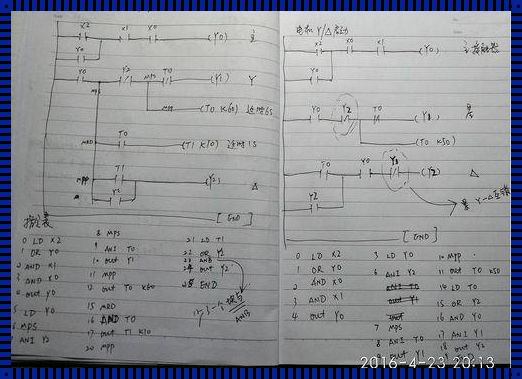 X2 X1 X0 (Y0) 主
Y0
Y0 Y2 MPS T0 (Y1) Y
MPS
MPP (T0 K60) 延时6s
T0
MRD (T1 K10) 延时1s
T1
MPP (Y2) Δ
Y2
[END]
指令表
0 LD X2
1 OR Y0
2 AND X1
3 AND X0
4 out Y0
5 LD Y0
6 MPS
7 ANI Y2
8 MPS
9 ANI T0
10 out Y1
11 MPP
12 out T0 K60
15 MRD
16 AND T0
17 out T1 K10
20 MPP
21 LD T1
22 OR Y2
23 ANB
24 out Y2
25 END
ANB
电机 Y/Δ启动
X2 X0 X1 (Y0) 主接触器
Y0
Y0 Y2 T0 (Y1) 星
(T0 K50)
T0 Y0 Y1 (Y2) Δ
Y2
星 Y-Δ互锁
[END]
0 LD X2
1 OR Y0
2 AND X0
3 AND X1
4 out Y0
5 LD Y0
6 ANI Y2
7 MPS
8 ANI T0
9 out Y1
10 MPP
11 out T0 K50
14 LD T0
15 OR Y2
16 AND Y0
17 ANI Y1
18 out Y2
2016-4-23 20:13